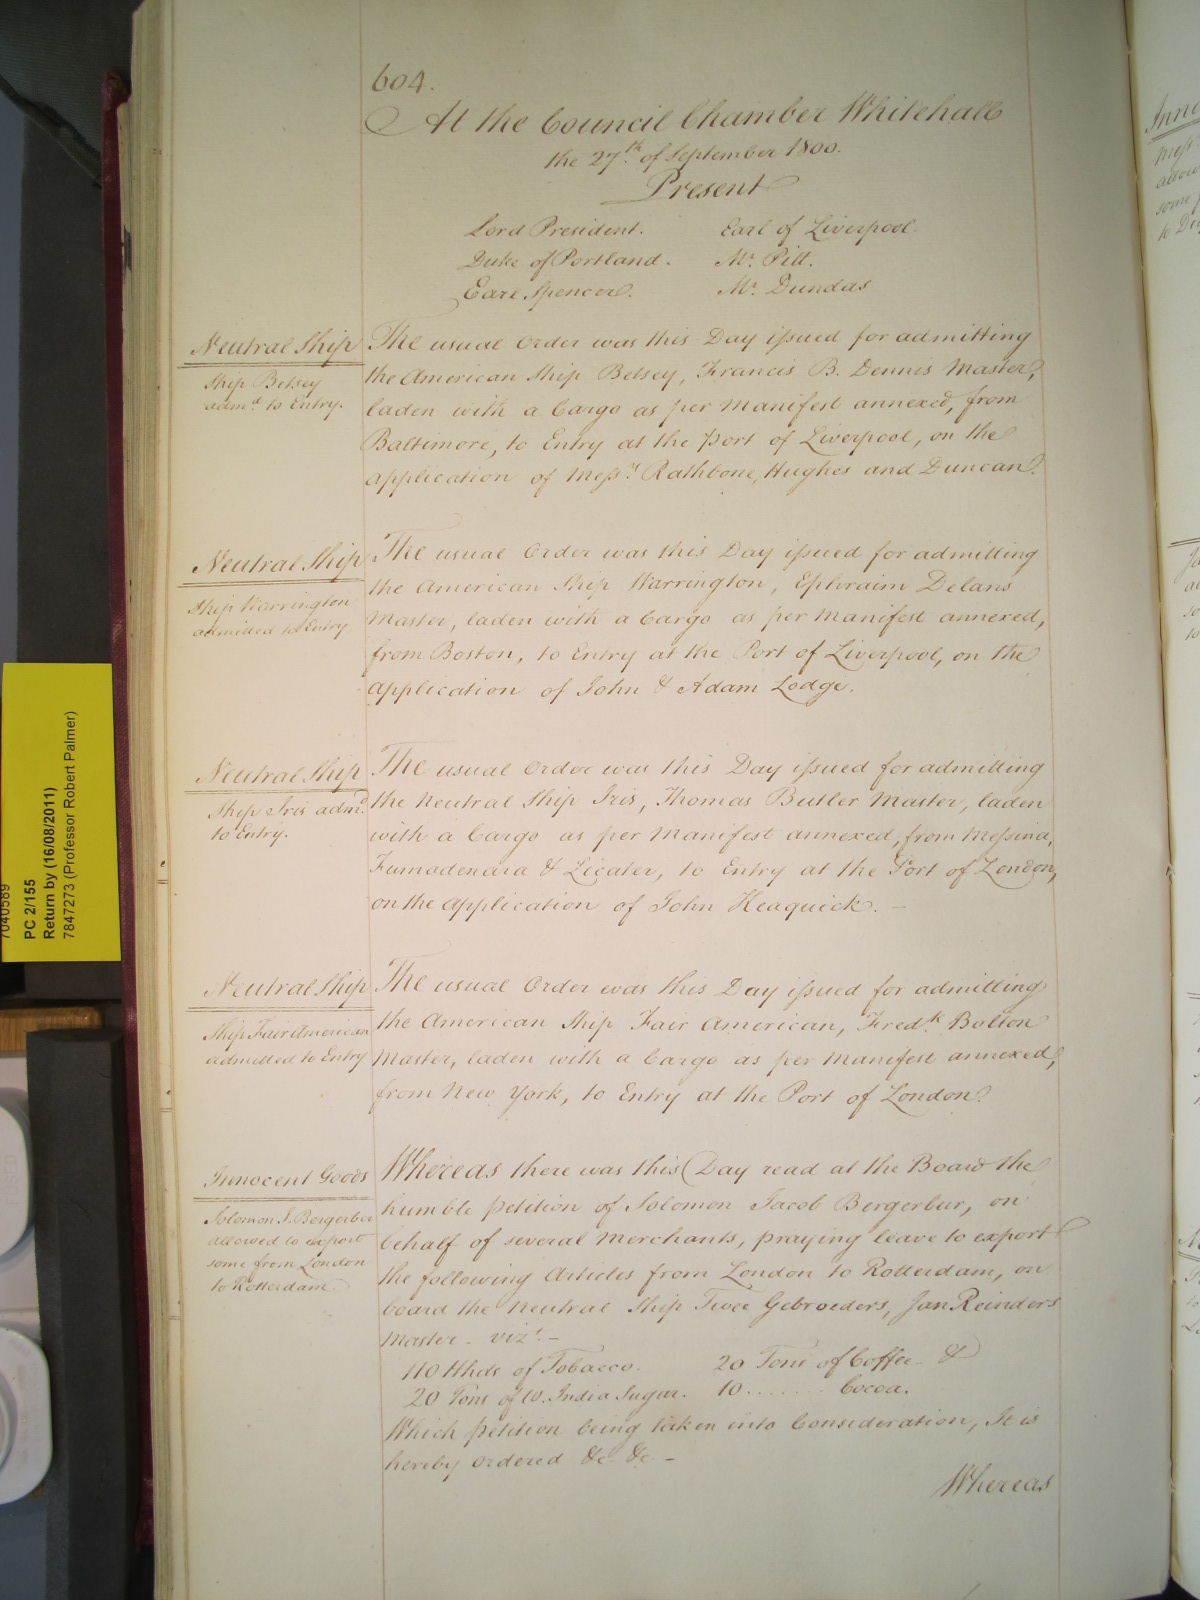 604.
At the Council Chamber Whitehall
the 27th of September 1800.
Present
Lord President. Earl of Liverpool.
Duke of Portland. Mr. Pitt.
Earl Spencer. Mr. Dundas
Neutral Ship
Ship Betsey
admd. to Entry.
The usual Order was this Day issued for admitting
the American Ship Betsey, Francis B. Dennis Master,
laden with a Cargo as per Manifest annexed, from
Baltimore, to Entry at the Port of Liverpool, on the
application of Messrs. Rathbone, Hughes and Duncan.
Neutral Ship
Ship Warrington
admitted to Entry
The usual Order was this Day issued for admitting
the American Ship Warrington, Ephraim Delans
Master, laden with a Cargo as per Manifest annexed,
from Boston, to Entry at the Port of Liverpool, on the
application of John & Adam Lodge.
Neutral Ship
Ship Iris admd.
to Entry.
The usual Order was this Day issued for admitting
the Neutral Ship Iris, Thomas Butler Master, laden
with a Cargo as per Manifest annexed, from Messina,
Fumadenara & Licater, to Entry at the Port of London,
on the application of John Heaquick. –
Neutral Ship
Ship Fair American
admitted to Entry
The usual Order was this Day issued for admitting
the American Ship Fair American, Fredk. Bolton
Master, laden with a Cargo as per Manifest annexed,
from New York, to Entry at the Port of London.
Innocent Goods
Solomon J. Bergerber
allowed to export
some from London
to Rotterdam.
Whereas there was this Day read at the Board the
humble petition of Solomon Jacob Bergerbur, on
behalf of several Merchants, praying leave to export
the following Articles from London to Rotterdam, on
board the Neutral Ship Twee Gebroeders, Jan Reinders
Master – vizt. –
110 Hhds of Tobacco. 20 Tons of Coffee – &
20 Tons of W. India Sugar. 10 ........ Cocoa.
Which petition being taken into Consideration, It is
hereby ordered &c. &c. –
Whereas
7040589
PC 2/155
Return by (16/08/2011)
7847273 (Professor Robert Palmer)